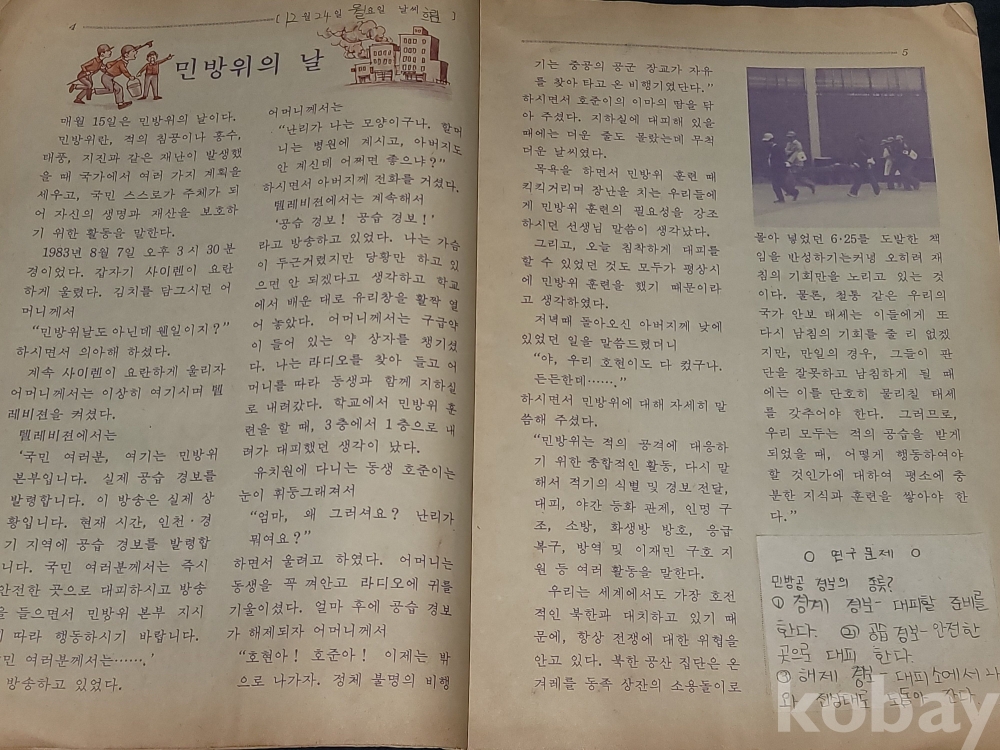 4
[12월 24일 월요일 날씨 ]
민방위의 날
매월 15일은 민방위의 날이다.
민방위란, 적의 침공이나 홍수,
태풍, 지진과 같은 재난이 발생했
을 때 국가에서 여러 가지 계획을
세우고, 국민 스스로가 주체가 되
어 자신의 생명과 재산을 보호하
기 위한 활동을 말한다.
1983년 8월 7일 오후 3시 30분
경이었다. 갑자기 사이렌이 요란
하게 울렸다. 김치를 담그시던 어
머니께서
“민방위날도 아닌데 웬일이지?”
하시면서 의아해 하셨다.
계속 사이렌이 요란하게 울리자
어머니께서는 이상히 여기시며 텔
레비젼을 켜셨다.
텔레비젼에서는
‘국민 여러분, 여기는 민방위
본부입니다. 실제 공습 경보를
발령합니다. 이 방송은 실제 상
황입니다. 현재 시간, 인천·경
기 지역에 공습 경보를 발령합
니다. 국민 여러분께서는 즉시
안전한 곳으로 대피하시고 방송
을 들으면서 민방위 본부 지시
에 따라 행동하시기 바랍니다.
국민 여러분께서는……’
방송하고 있었다.
어머니께서는
“난리가 나는 모양이구나. 할머
니는 병원에 계시고, 아버지도
안 계신데 어쩌면 좋으냐?”
하시면서 아버지께 전화를 거셨다.
텔레비젼에서는 계속해서
‘공습 경보! 공습 경보!’
라고 방송하고 있었다. 나는 가슴
이 두근거렸지만 당황만 하고 있
으면 안 되겠다고 생각하고 학교
에서 배운 대로 유리창을 활짝 열
어 놓았다. 어머니께서는 구급약
이 들어 있는 약 상자를 챙기셨
다. 나는 라디오를 찾아 들고 어
머니를 따라 동생과 함께 지하실
로 내려갔다. 학교에서 민방위 훈
련을 할 때, 3층에서 1층으로 내
려가 대피했던 생각이 났다.
유치원에 다니는 동생 호준이는
눈이 휘둥그래져서
“엄마, 왜 그러셔요? 난리가
뭐여요?”
하면서 울려고 하였다. 어머니는
동생을 꼭 껴안고 라디오에 귀를
기울이셨다. 얼마 후에 공습 경보
가 해제되자 어머니께서
“호현아! 호준아! 이제는 밖
으로 나가자. 정체 불명의 비행
5
기는 중공의 공군 장교가 자유
를 찾아 타고 온 비행기였단다.”
하시면서 호준이의 이마의 땀을 닦
아 주셨다. 지하실에 대피해 있을
때에는 더운 줄도 몰랐는데 무척
더운 날씨였다.
목욕을 하면서 민방위 훈련 때
킥킥거리며 장난을 치는 우리들에
게 민방위 훈련의 필요성을 강조
하시던 선생님 말씀이 생각났다.
그리고, 오늘 침착하게 대피를
할 수 있었던 것도 모두가 평상시
에 민방위 훈련을 했기 때문이라
고 생각하였다.
저녁때 돌아오신 아버지께 낮에
있었던 일을 말씀드렸더니
“야, 우리 호현이도 다 컸구나.
든든한데……”
하시면서 민방위에 대해 자세히 말
씀해 주셨다.
“민방위는 적의 공격에 대응하
기 위한 종합적인 활동, 다시 말
해서 적기의 식별 및 경보 전달,
대피, 야간 등화 관제, 인명 구
조, 소방, 화생방 방호, 응급
복구, 방역 및 이재민 구호 지
원 등 여러 활동을 말한다.
우리는 세계에서도 가장 호전
적인 북한과 대치하고 있기 때
문에, 항상 전쟁에 대한 위협을
안고 있다. 북한 공산 집단은 온
겨레를 동족 상잔의 소용돌이로
몰아 넣었던 6·25를 도발한 책
임을 반성하기는커녕 오히려 재
침의 기회만을 노리고 있는 것
이다. 물론, 철통 같은 우리의
국가 안보 태세는 이들에게 또
다시 남침의 기회를 줄 리 없겠
지만, 만일의 경우, 그들이 판
단을 잘못하고 남침하게 될 때
에는 이를 단호히 물리칠 태세
를 갖추어야 한다. 그러므로,
우리 모두는 적의 공습을 받게
되었을 때, 어떻게 행동하여야
할 것인가에 대하여 평소에 충
분한 지식과 훈련을 쌓아야 한
다.”
○ 연구문제 ○
민방공 경보의 종류?
① 경계 경보- 대피할 준비를
한다. ② 공습 경보- 안전한
곳으로 대피 한다.
③ 해제 경보- 대피소에서 나
와 간다.
kobay